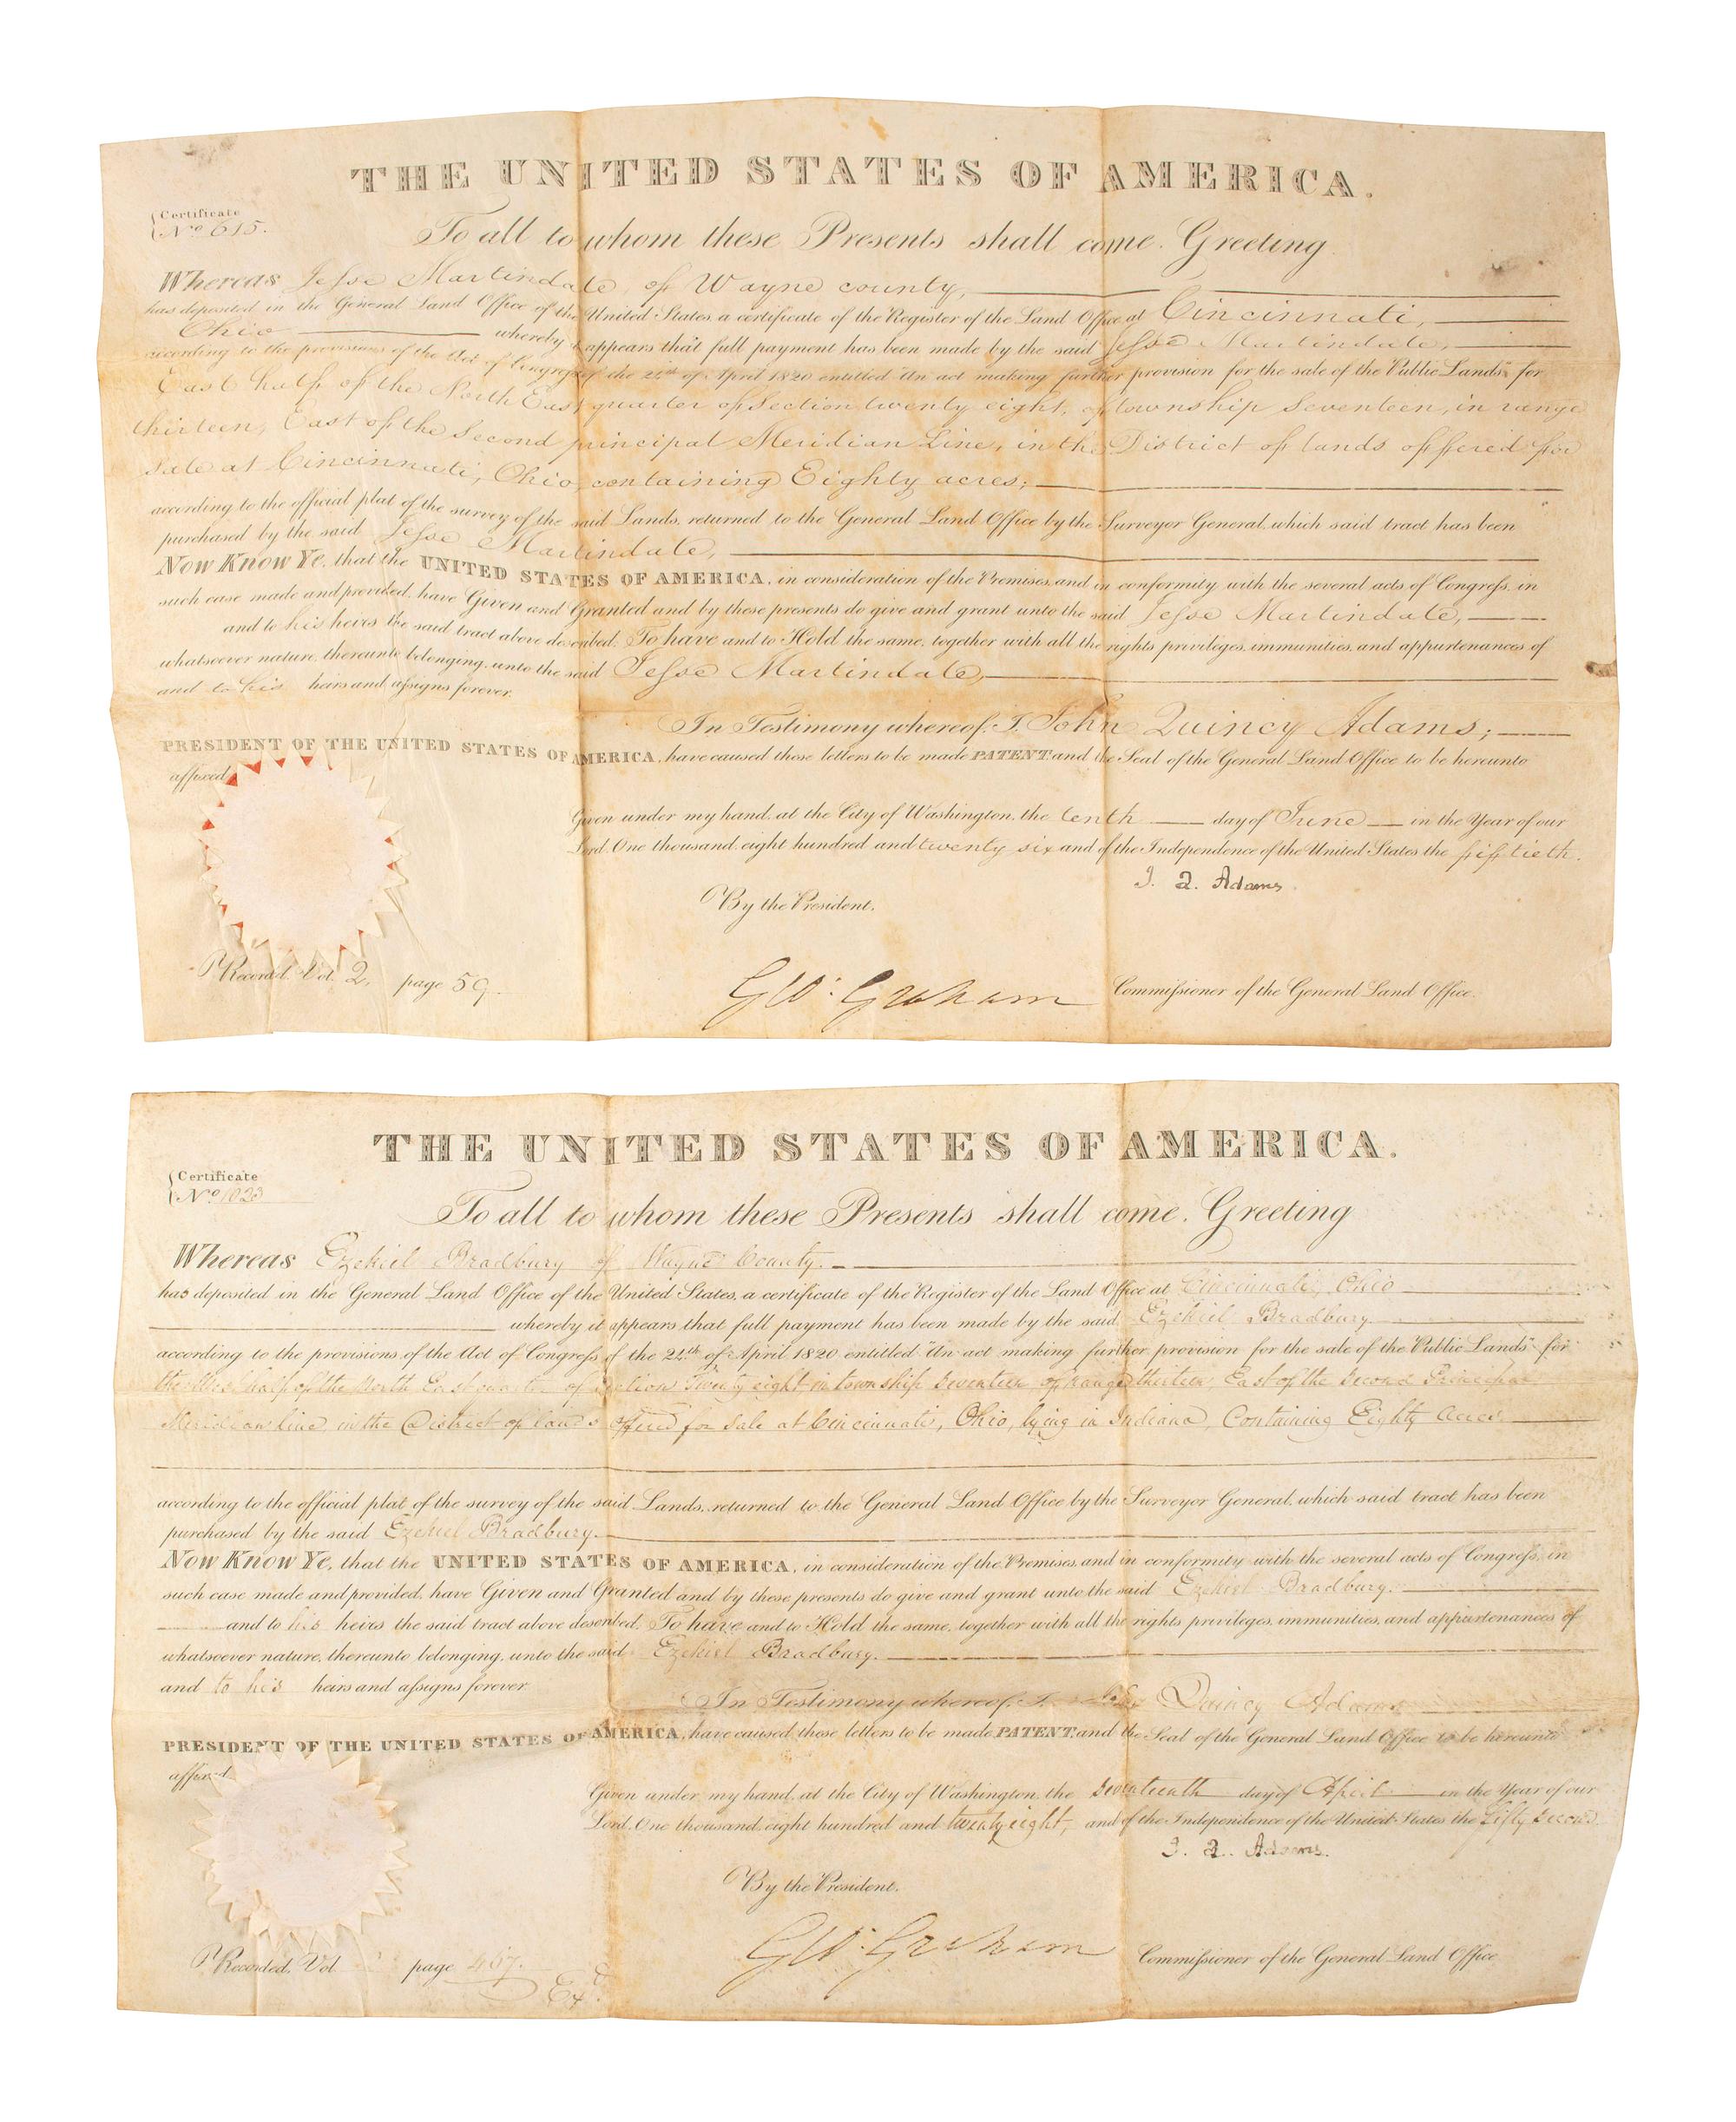 THE UNITED STATES OF AMERICA.
Certificate
No. 615.
To all to whom these Presents shall come. Greeting
Whereas Jesse Martindale, of Wayne county,
has deposited in the General Land Office of the United States, a certificate of the Register of the Land Office at Cincinnati,
Ohio whereby it appears that full payment has been made by the said Jesse Martindale,
according to the provisions of the Act of Congress of the 24th of April 1820 entitled "An act making further provision for the sale of the Public Lands" for
East half of the North East quarter of Section twenty eight, of township Seventeen, in range
thirteen, East of the Second principal Meridian Line, in the District of lands offered for
Sale at Cincinnati, Ohio, containing Eighty acres;
according to the official plat of the survey of the said Lands, returned to the General Land Office by the Surveyor General, which said tract has been
purchased by the said Jesse Martindale,
Now Know Ye, that the UNITED STATES OF AMERICA, in consideration of the Premises, and in conformity with the several acts of Congress, in
such case made and provided, have Given and Granted and by these presents do give and grant unto the said Jesse Martindale,
and to his heirs the said tract above described. To have and to Hold the same, together with all the rights privileges, immunities, and appurtenances of
whatsoever nature, thereunto belonging, unto the said Jesse Martindale,
and to his heirs and assigns forever.
In Testimony whereof, I John Quincy Adams;
PRESIDENT OF THE UNITED STATES OF AMERICA, have caused these letters to be made PATENT and the Seal of the General Land Office to be hereunto
affixed
Given under my hand, at the City of Washington, the tenth day of June in the Year of our
Lord, One thousand, eight hundred and twenty six and of the Independence of the United States the fiftieth.
J. Q. Adams
By the President.
Recorded, Vol. 2, page 59.
GW. Graham Commissioner of the General Land Office.
THE UNITED STATES OF AMERICA.
Certificate
No. 1023
To all to whom these Presents shall come. Greeting
Whereas Ezekiel Bradbury of Wayne County.
has deposited in the General Land Office of the United States, a certificate of the Register of the Land Office at Cincinnati, Ohio
whereby it appears that full payment has been made by the said Ezekiel Bradbury
according to the provisions of the Act of Congress of the 24th of April 1820 entitled "An act making further provision for the sale of the Public Lands" for
the West half of the North East quarter of Section Twenty eight in township Seventeen of range thirteen, East of the Second Principal
Meridian line, in the District of lands offered for Sale at Cincinnati, Ohio, lying in Indiana, Containing Eighty Acres
according to the official plat of the survey of the said Lands, returned to the General Land Office by the Surveyor General, which said tract has been
purchased by the said Ezekiel Bradbury.
Now Know Ye, that the UNITED STATES OF AMERICA, in consideration of the Premises, and in conformity with the several acts of Congress, in
such case made and provided, have Given and Granted and by these presents do give and grant unto the said Ezekiel Bradbury.
and to his heirs the said tract above described. To have and to Hold the same, together with all the rights privileges, immunities, and appurtenances of
whatsoever nature, thereunto belonging, unto the said Ezekiel Bradbury.
and to his heirs and assigns forever
In Testimony whereof, I Quincy Adams
PRESIDENT OF THE UNITED STATES OF AMERICA, have caused these letters to be made PATENT, and the Seal of the General Land Office to be hereunto
affixed
Given under my hand, at the City of Washington, the Seventeenth day of April in the Year of our
Lord, One thousand, eight hundred and twenty eight, and of the Independence of the United States the fifty Second
J. Q. Adams.
By the President.
Recorded, Vol. page 467.
GW. Graham Commissioner of the General Land Office